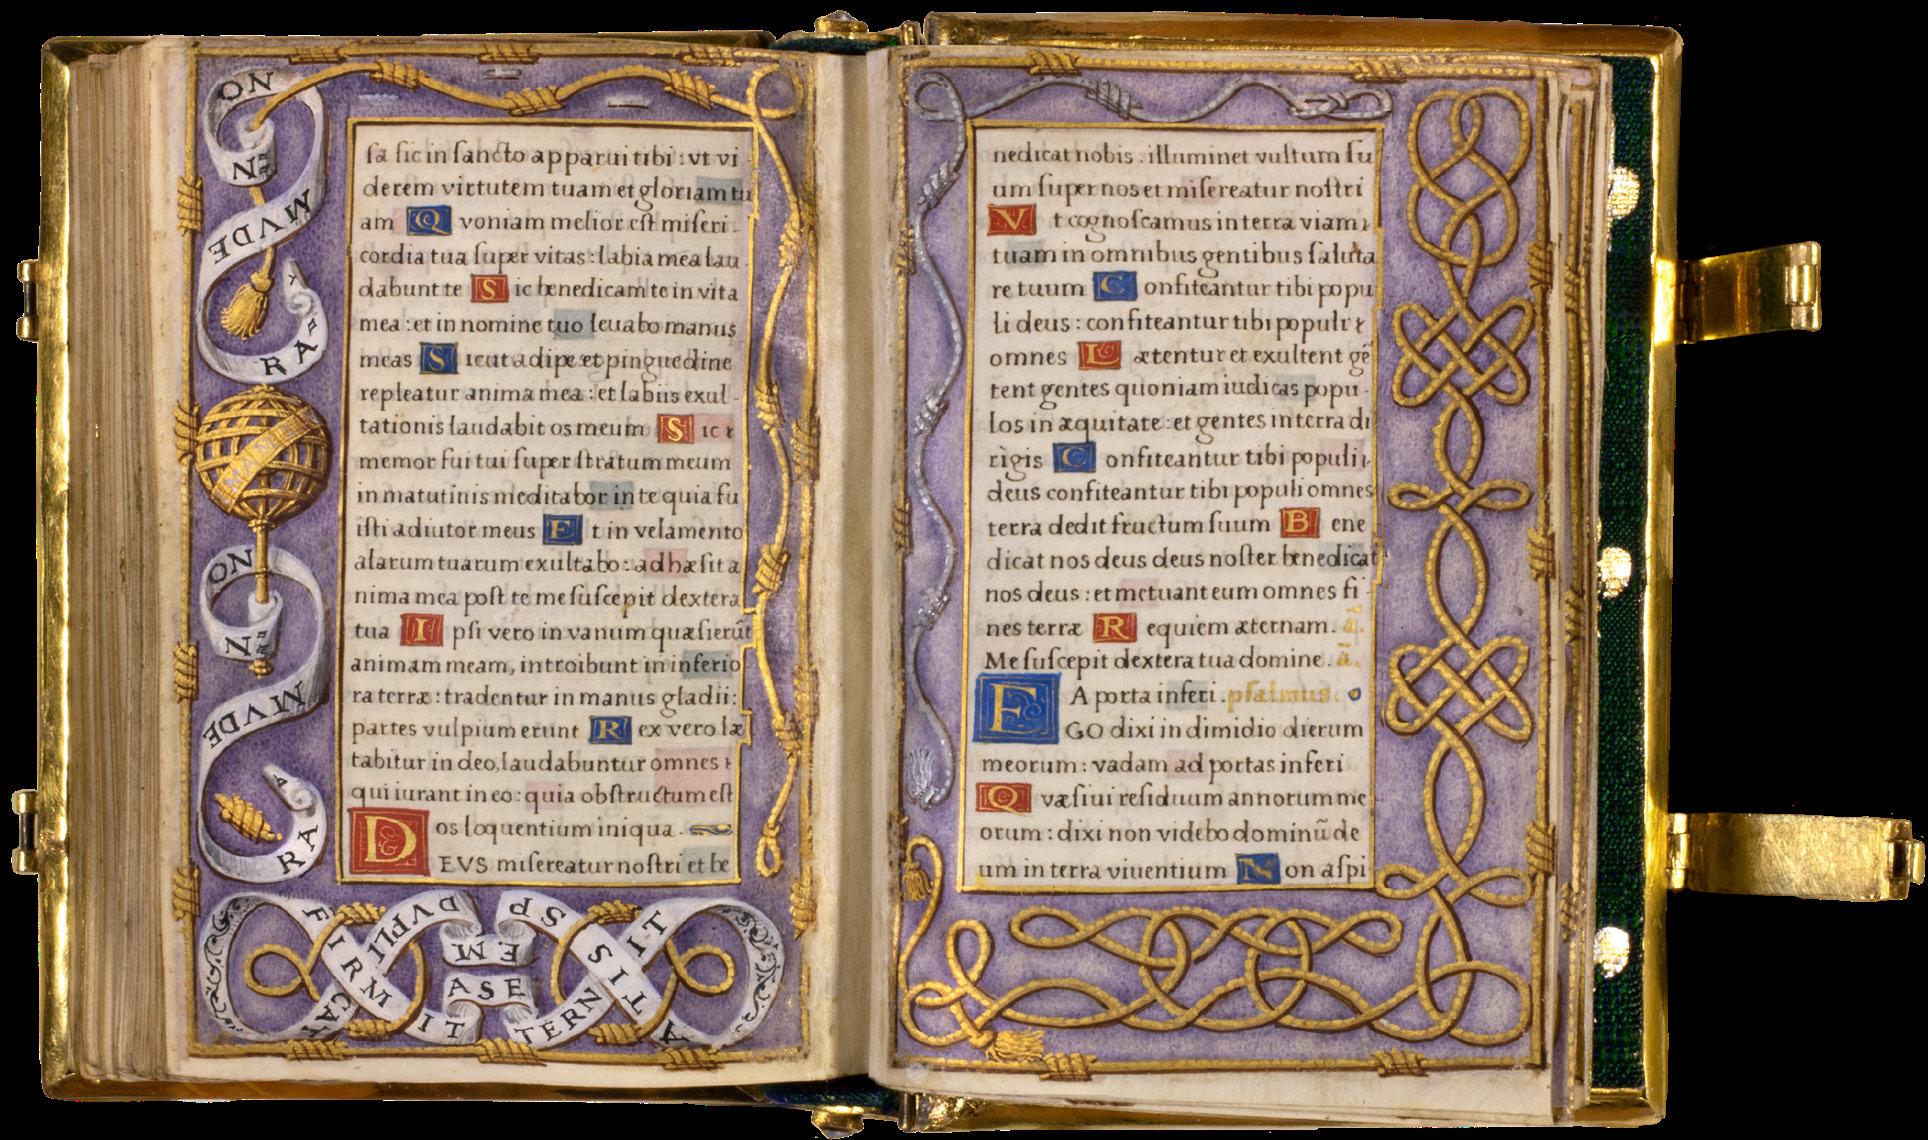 sa sic in sancto apparui tibi : vt vi
derem virtutem tuam et gloriam tu
am Q voniam melior est miseri-
cordia tua super vitas : labia mea lau
dabunt te S ic benedicam te in vita
mea : et in nomine tuo leuabo manus
meas S icut adipe et pinguedine
repleatur anima mea : et labiis exul-
tationis laudabit os meum S ic ⁊
memor fui tui super stratum meum
in matutinis meditabor in te quia fu
isti adiutor meus E t in velamento
alarum tuarum exultabo : adhæsit a
nima mea post te me suscepit dextera
tua I psi vero in vanum quæsierūt
animam meam, introibunt in inferio
ra terræ : tradentur in manus gladii :
partes vulpium erunt R ex vero læ
tabitur in deo, laudabuntur omnes ⁊
qui iurant in eo : quia obstructum est
os loquentium iniqua.
DEVS misereatur nostri et be
NON
MVDE
RA
NON
MVDE
RA
FIRMIT
DVPLI
EM
ASE
TERN
SP
SIT
nedicat nobis : illuminet vultum su
um super nos et misereatur nostri
V t cognoscamus in terra viam
tuam in omnibus gentibus saluta
re tuum C onfiteantur tibi popu
li deus : confiteantur tibi populi ⁊
omnes L ætentur et exultent gē
tent gentes quoniam iudicas popu-
los in æquitate : et gentes in terra di
rigis C onfiteantur tibi populi ⁊
deus confiteantur tibi populi omnes
terra dedit fructum suum B ene
dicat nos deus deus noster benedicat
nos deus : et metuant eum omnes fi-
nes terræ R equiem æternam. a.
Me suscepit dextera tua domine. ã.
A porta inferi. psalmus.
EGO dixi in dimidio dierum
meorum : vadam ad portas inferi
Q væsiui residuum annorum me
orum : dixi non videbo dominū de
um in terra viuentium N on aspi